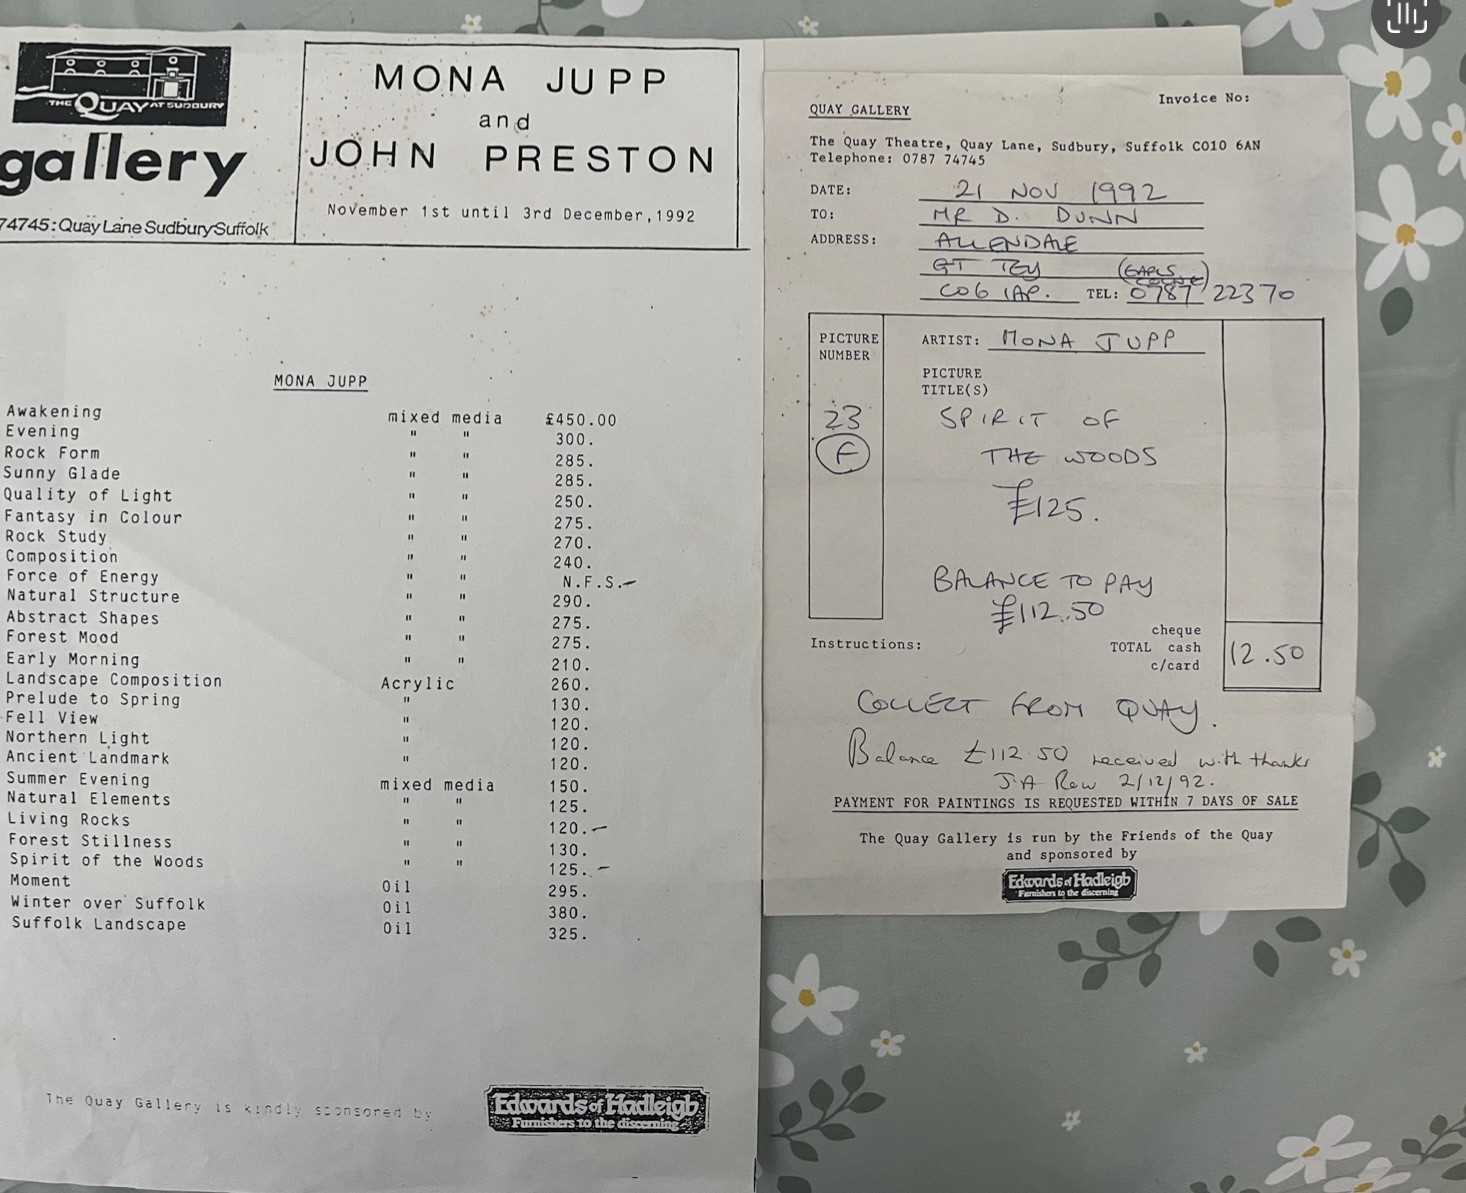 THE QUAY AT SUDBURY
gallery
74745: Quay Lane Sudbury Suffolk
MONA JUPP
and
JOHN PRESTON
November 1st until 3rd December, 1992
MONA JUPP
Awakening mixed media £450.00
Evening " " 300.
Rock Form " " 285.
Sunny Glade " " 285.
Quality of Light " " 250.
Fantasy in Colour " " 275.
Rock Study " " 270.
Composition " " 240.
Force of Energy " " N.F.S.-
Natural Structure " " 290.
Abstract Shapes " " 275.
Forest Mood " " 275.
Early Morning " " 210.
Landscape Composition Acrylic 260.
Prelude to Spring " 130.
Fell View " 120.
Northern Light " 120.
Ancient Landmark " 120.
Summer Evening mixed media 150.
Natural Elements " " 125.
Living Rocks " " 120.-
Forest Stillness " " 130.
Spirit of the Woods " " 125.-
Moment Oil 295.
Winter over Suffolk Oil 380.
Suffolk Landscape Oil 325.
The Quay Gallery is kindly sponsored by
Edwards of Hadleigh
Furnishers to the discerning
Invoice No:
QUAY GALLERY
The Quay Theatre, Quay Lane, Sudbury, Suffolk CO10 6AN
Telephone: 0787 74745
DATE: 21 NOV 1992
TO: MR D. DUNN
ADDRESS: ALLENDALE
GT TEY (EARLS COLNE)
CO6 1AP. TEL: 0787 22370
PICTURE NUMBER
ARTIST: MONA JUPP
PICTURE
TITLE(S)
23 SPIRIT OF
F THE WOODS
£125.
BALANCE TO PAY
£112.50
Instructions:
cheque
TOTAL cash 12.50
c/card
COLLECT FROM QUAY.
Balance £112.50 received with thanks
J.A Rew 2/12/92.
PAYMENT FOR PAINTINGS IS REQUESTED WITHIN 7 DAYS OF SALE
The Quay Gallery is run by the Friends of the Quay
and sponsored by
Edwards of Hadleigh
Furnishers to the discerning